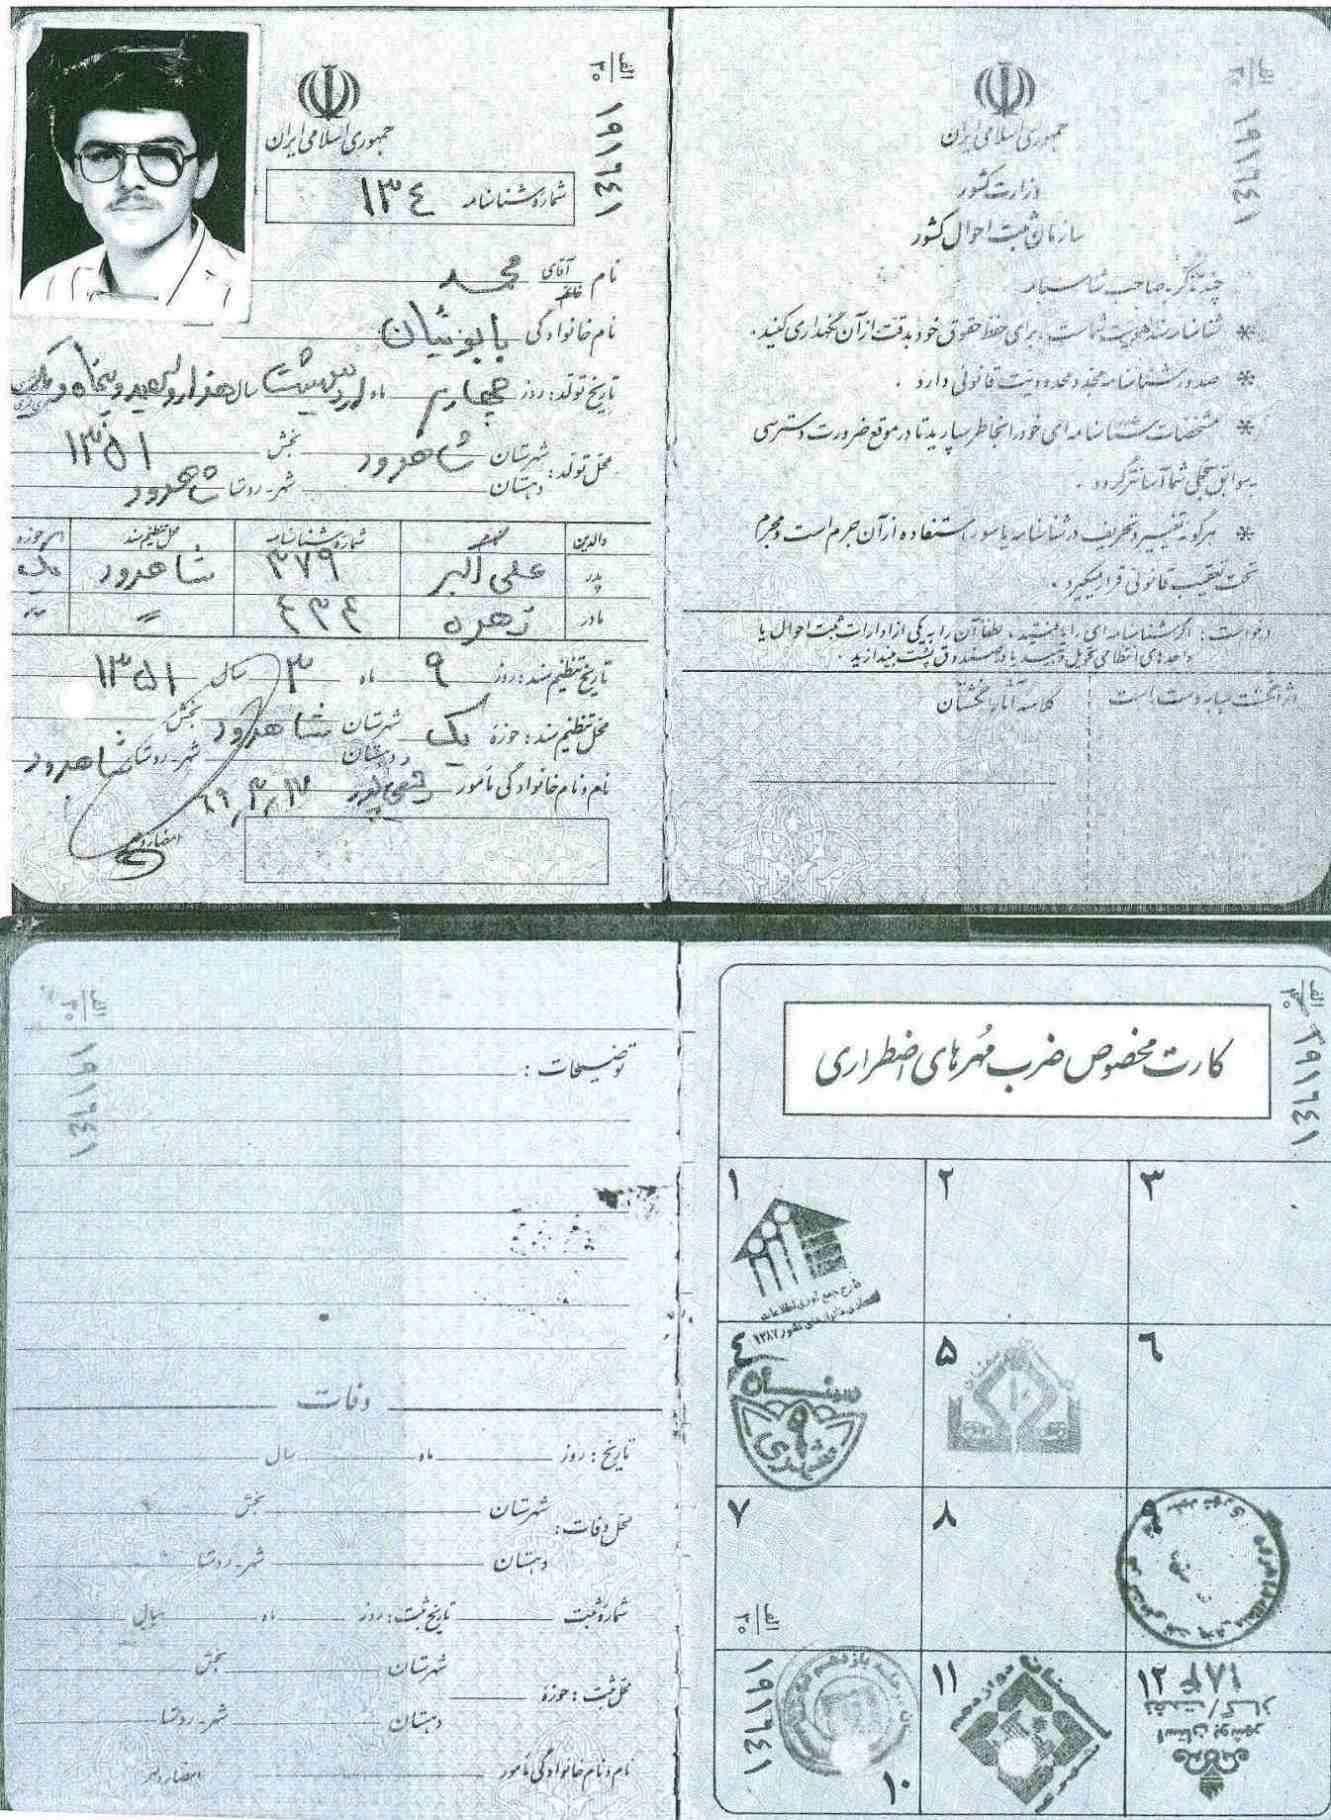 الف
۳۰
۱۹۱٦٤۱
جمهوری اسلامی ایران
شماره شناسنامه ۱۳٤
نام آقای محمد
خانم
نام خانوادگی بابونیان
تاریخ تولد: روز چهارم ماه اردیبهشت سال هزار و سیصد و پنجاه و یک
۱۳۵۱
محل تولد: شهرستان شاهرود بخش
دهستان شهر-روستا شاهرود
والدین نام شماره شناسنامه محل تنظیم سند حوزه
پدر علی اکبر ۳۷۹ شاهرود یک
مادر زهره ٤۳٤ 〃 〃
تاریخ تنظیم سند: روز ۹ ماه ۳ سال ۱۳۵۱
محل تنظیم سند: حوزه یک شهرستان شاهرود بخش
دهستان شهر-روستا شاهرود
نام و نام خانوادگی مأمور
امضاء و مهر
الف
۳۰
۱۹۱٦٤۱
جمهوری اسلامی ایران
وزارت کشور
سازمان ثبت احوال کشور
چند تذکر به صاحب شناسنامه
* شناسنامه سند هویت شماست، برای حفظ حقوق خود بدقت از آن نگهداری کنید.
* صدور شناسنامه مجدد محدودیت قانونی دارد.
* مشخصات شناسنامه‌ای خود را بخاطر بسپارید تا در موقع ضرورت دسترسی
بسوابق سجلی شما آسانتر گردد.
* هرگونه تغییر و تحریف در شناسنامه یا سوء استفاده از آن جرم است و مجرم
تحت تعقیب قانونی قرار میگیرد.
درخواست: اگر شناسنامه‌ای را یافتید، لطفاً آن را به یکی از ادارات ثبت احوال یا
واحدهای انتظامی تحویل دهید یا در صندوق پست بیندازید.
اثر انگشت سبابه دست راست
کلاسه آثار انگشتان
الف
۳۰
۱۹۱٦٤۱
توضیحات:
وفات
تاریخ: روز ماه سال
محل وفات: شهرستان بخش
دهستان شهر-روستا
شماره ثبت تاریخ ثبت: روز ماه سال
محل ثبت: حوزه شهرستان بخش
دهستان شهر-روستا
نام و نام خانوادگی مأمور امضاء و مهر
الف
۳۰
۱۹۱٦٤۱
کارت مخصوص ضرب مهرهای اضطراری
۱ ۲ ۳
طرح جمع آوری اطلاعات
کشور ۱۳۸۷
٤ ۵ ٦
سمنان
۹
۱۰
۷ ۸ ۹
الف
۳۰
۱۹۱٦٤۱
۱۰ ۱۱ ۱۲
نفت / گاز
استان بوشهر